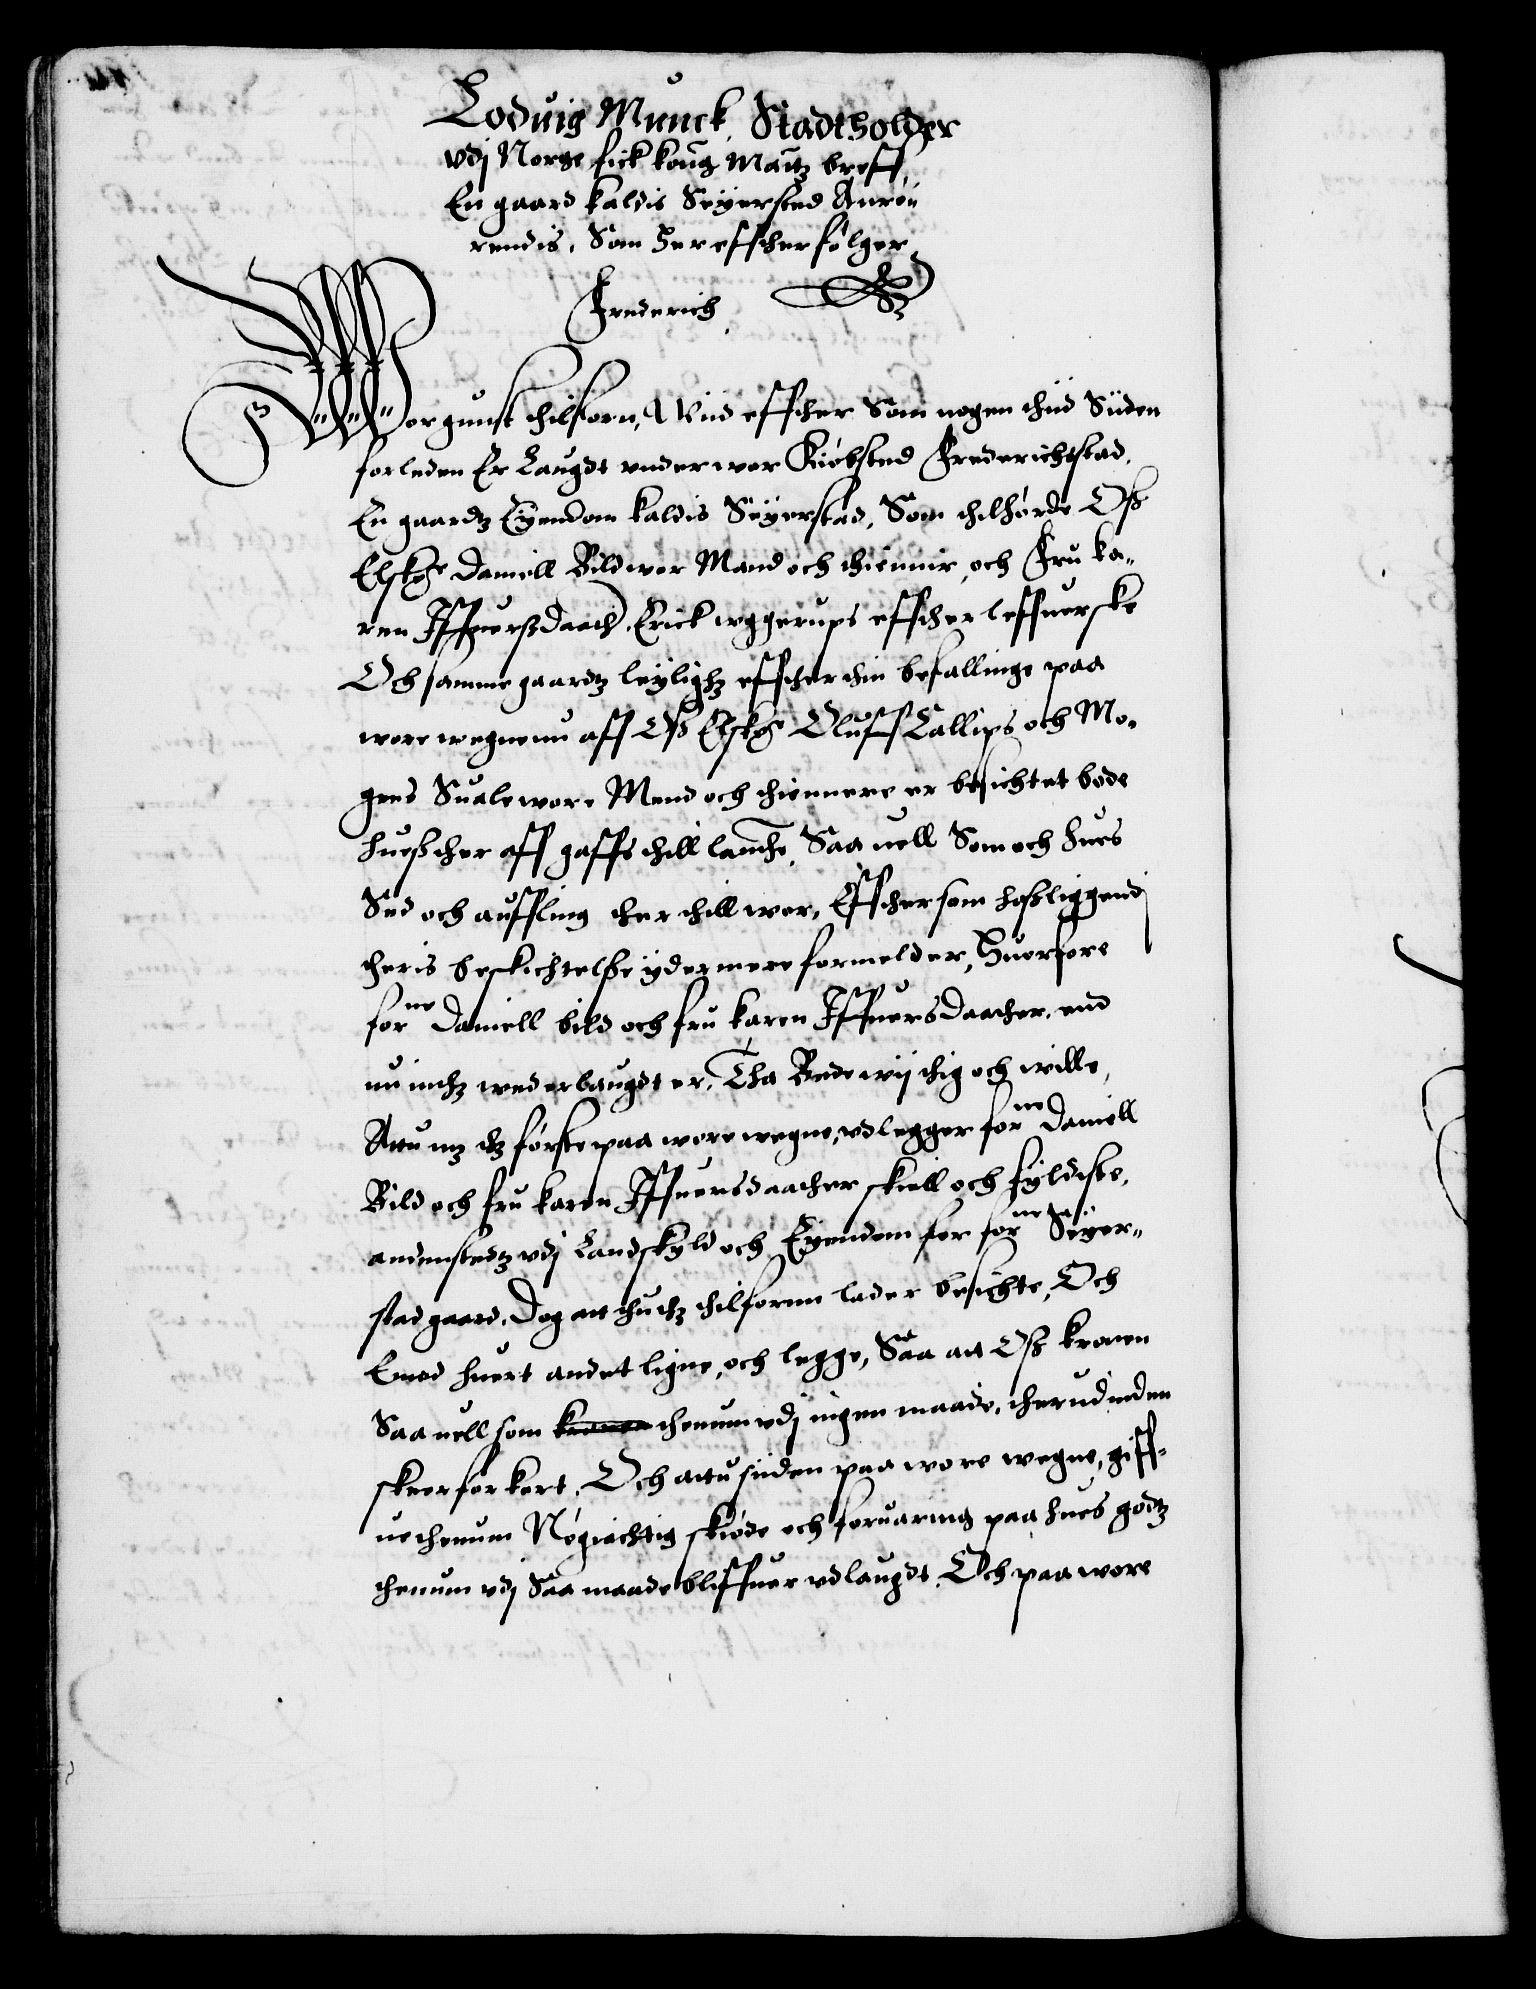 Lodvig Munck Stadtholder
vdj Norge fick kong Mautz breff
En gaard kaldis Seÿersted Anrøü
rendis, Som Her effther følger
Frederich
Wor gunst thilforn, Wiid effther Som nogen thiid Siiden
forleden Er Laugdt vnder wor Kiøbsted Frederichstad,
En gaardtz Eÿendom kaldis Seÿerstad, Som thilhørde Oß
Elskge Daniell Bild wor Mand och thiennir, och Fru ka„
ren Iffuerßdaath, Erick wggerups effther leffuerske
Och samme gaardtz leÿlighz effther thin befallinge paa
wore wegne nu aff Oß Elskge Oluff Callips och Mo„
gens Suale wore Mend och thiennere er besichtet bode
hueß ther aff gaffs thill landhe, Saa uell Som och hues
Sed och auffling ther thill wor, Effther som hoßliggendj
theris besichtelße ÿdermere formelder, Huorfore
forne Daniell bild och fru karen Iffuersdaather, end
nu inthz wederlaugdt er, Tha Bede wij thig och wille,
Attu mz dz første paa wore wegne, vdlegger forne Daniell
Bild och fru karen Iffuersdaather skiell och fÿldiste,
andenstedtz vdj Landskÿld och Eÿendom for forne Seÿer„
stad gaard, Dog att thu dz thilforne lader besichte, Och
Emod huert andet ligne, och legge, Saa att Oß kronen
Saa uell som kronen thenum vdj ingen maade, therudinden
skeer for kort, Och attu siiden paa wore wegne, giff„
ue thenum Nøgiachtig skiøde och foruaring paa hues godtz
thenum vdj Saa maade bliffuer vdlaugdt, Och paa wore